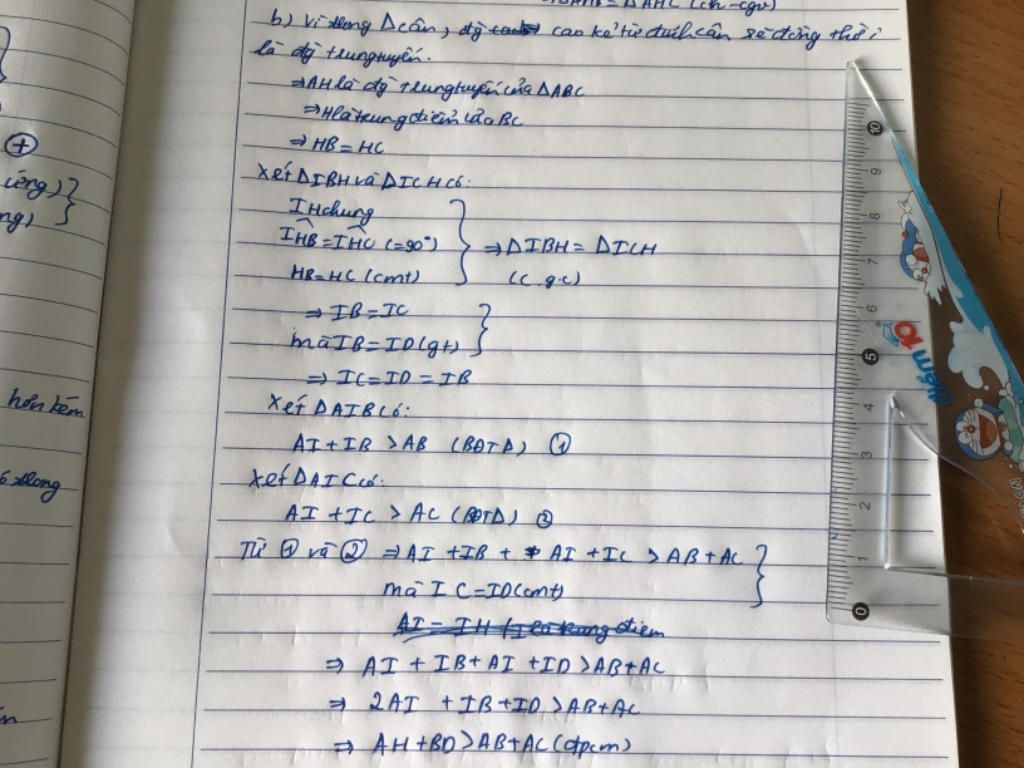 = ΔAHC (ch-cgv)
b) Vì trong Δcân, đg cao kẻ từ đỉnh cân sẽ đồng thời
là đg trung tuyến.
⇒ AH là đg trung tuyến của ΔABC
⇒ H là trung điểm của BC
⇒ HB = HC
Xét ΔIBH và ΔICH có:
IH chung
IHB = IHC (=90°)
HB = HC (cmt)
⇒ ΔIBH = ΔICH
(c.g.c)
⇒ IB = IC
mà IB = ID (gt)
⇒ IC = ID = IB
Xét ΔAIB có:
AI + IB > AB (BĐTΔ) ①
Xét ΔAIC có:
AI + IC > AC (BĐTΔ) ②
Từ ① và ② ⇒ AI + IB + AI + IC > AB + AC
mà IC = ID (cmt)
⇒ AI + IB + AI + ID > AB + AC
⇒ 2AI + IB + ID > AB + AC
⇒ AH + BD > AB + AC (đpcm)
+
ứng)
ng)
hơn kém
trong
10
9
8
7
6
5
4
3
2
1
0
điểm 10